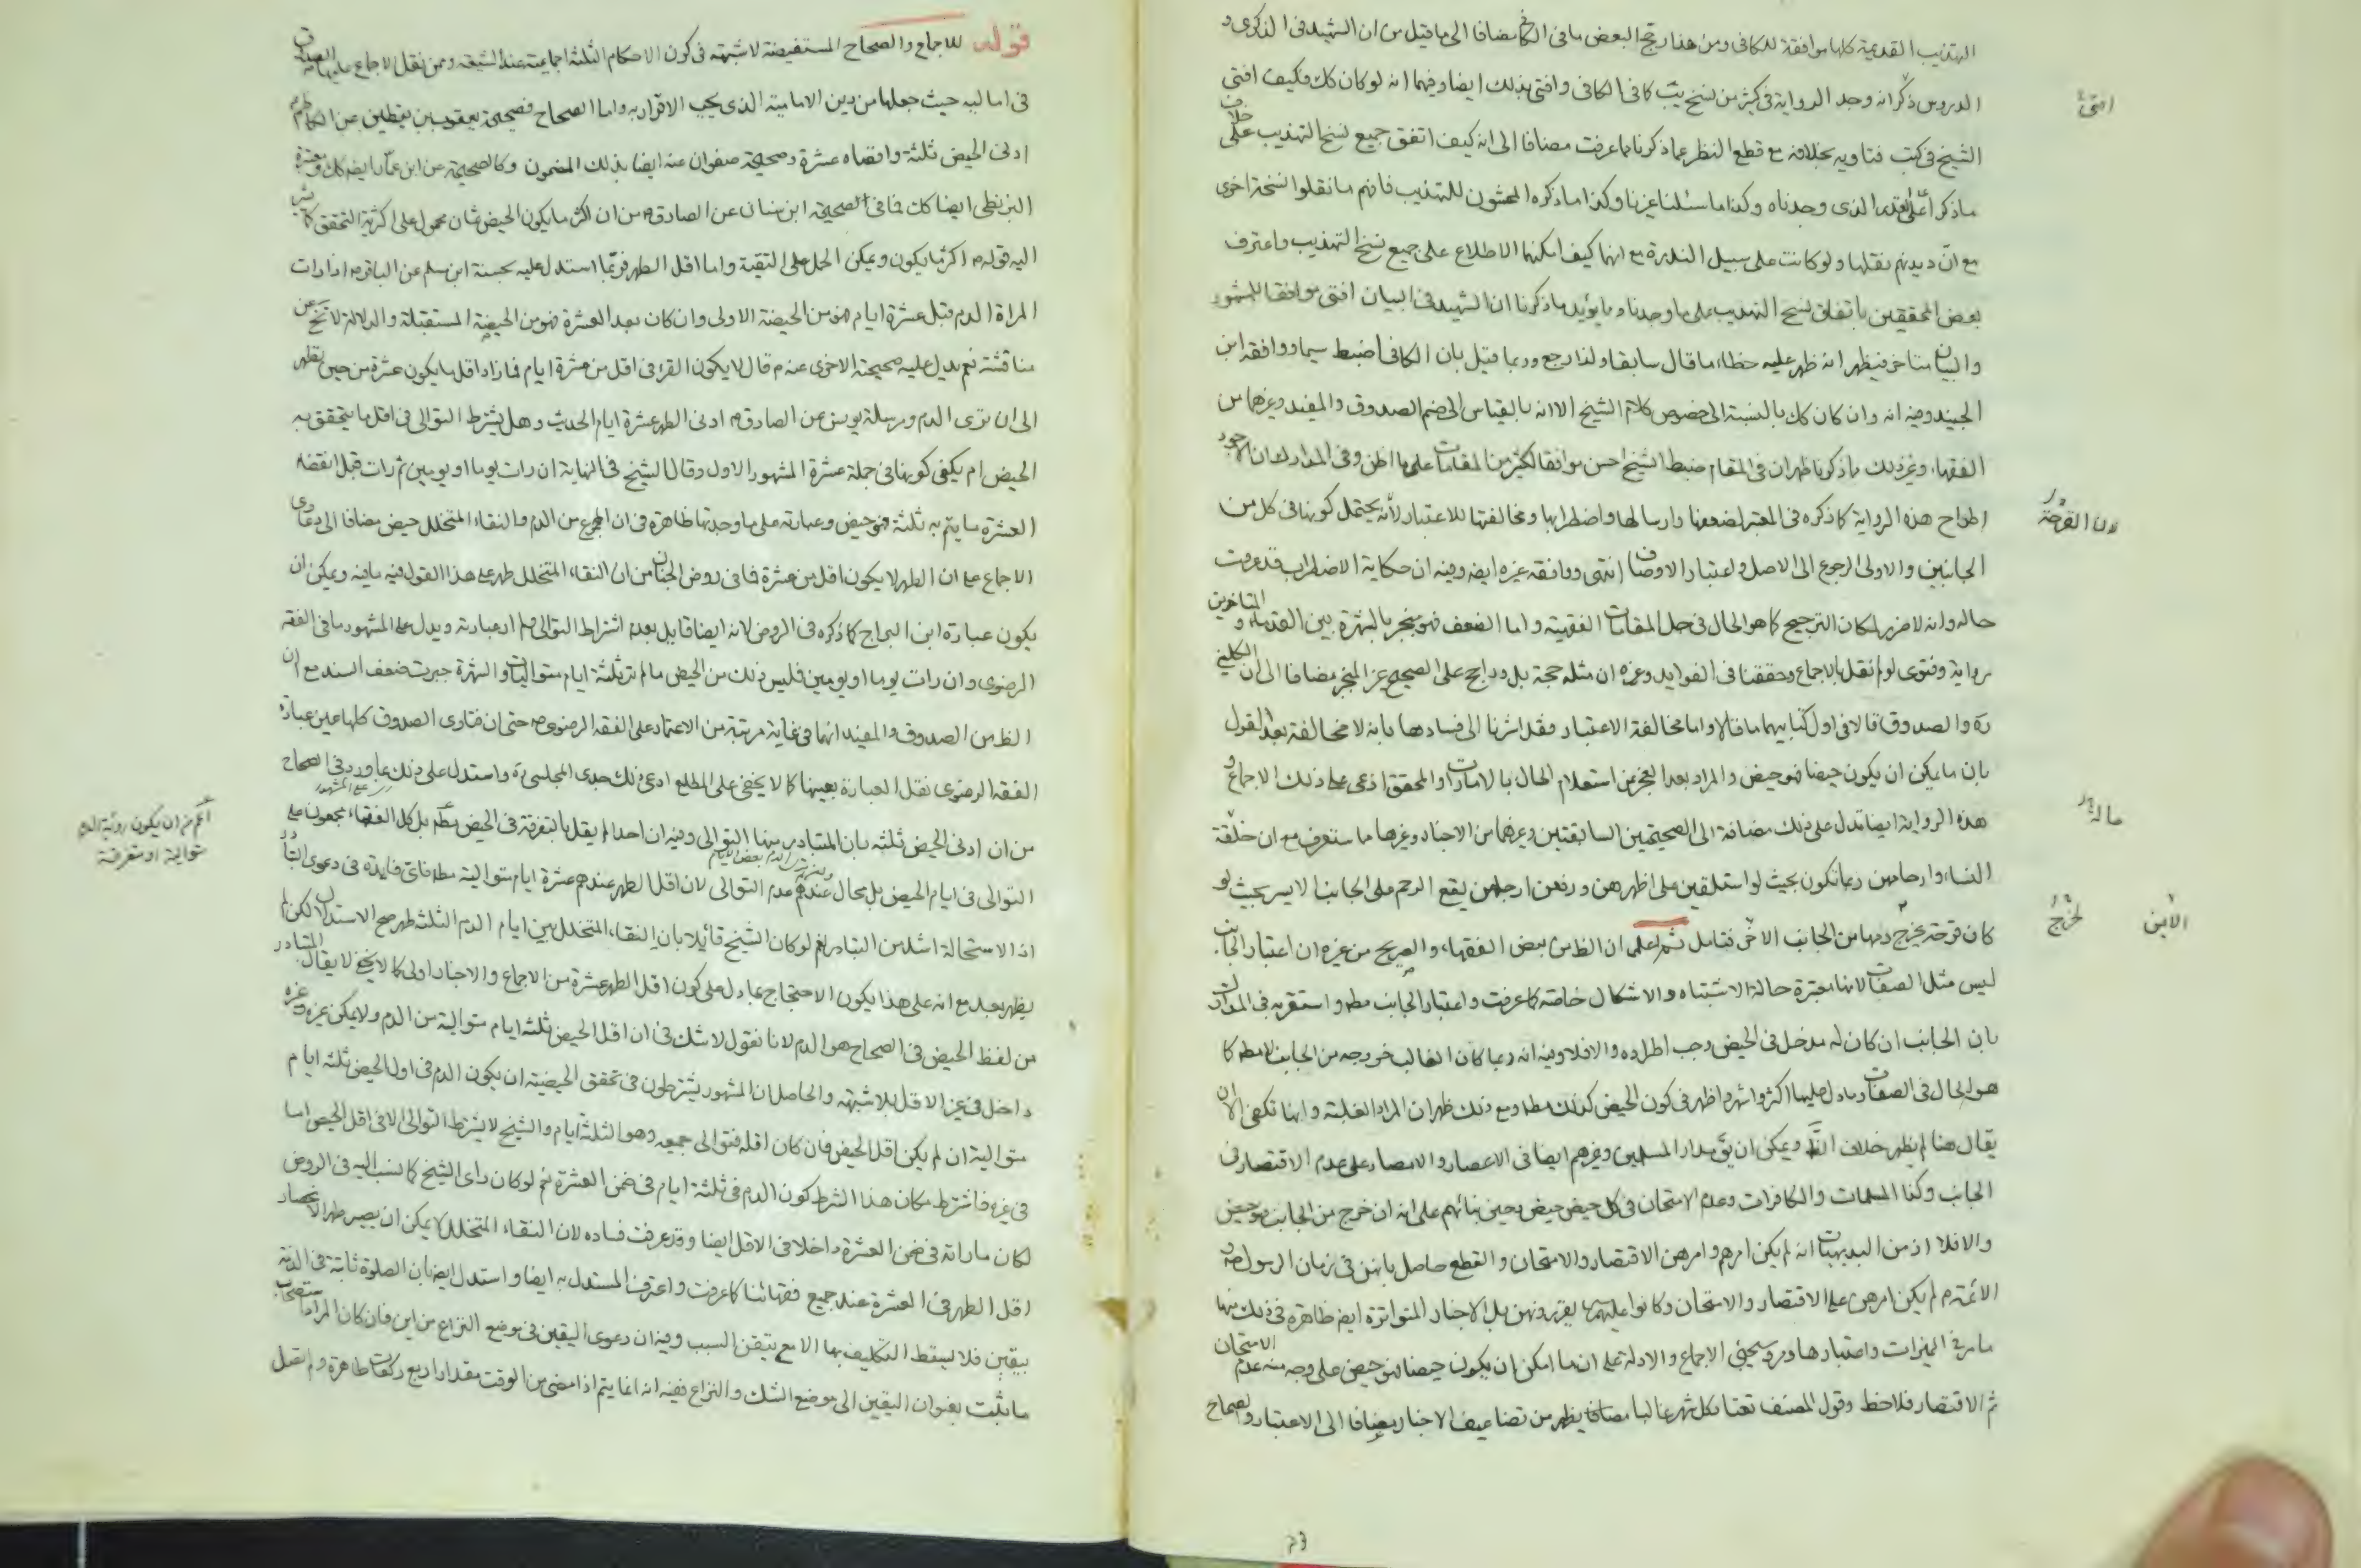 التهذيب القديمة كلها موافقة للكافى ومن هذا رجح البعض ما فى الكافى مضافا الى ما قيل من ان الشهيد فى الذكرى و
الدروس ذكر انه وجد الرواية فى كثير من نسخ يب كما فى الكافى وافتى بذلك ايضا وفيهما انه لو كان كك فكيف افتى
الشيخ فى كتب فتاويه بخلافه مع قطع النظر عما ذكرنا مما عرفت مضافا الى انه كيف اتفق جميع نسخ التهذيب على خلاف
ما ذكرا على القدر الذى وجدناه وكذا ما سئلنا غيرنا وكذا ما ذكره المحشون للتهذيب فانهم ما نقلوا نسخة اخرى
مع ان ديدنهم نقلها ولو كانت على سبيل الندرة مع انهما كيف امكنهما الاطلاع على جميع نسخ التهذيب واعترف
بعض المحققين باتفاق نسخ التهذيب على ما وجدناه ومما يؤيد ما ذكرنا ان الشهيد فى البيان افتى موافقا للمشهور
والبيان متاخر فيظهر انه ظهر عليه خطاء ما قال سابقا ولذا رجع وربما قيل بان الكافى اضبط سيما ووافقه ابن
الجنيد وفيه انه وان كان كك بالنسبة الى خصوص كلام الشيخ الا انه بالقياس الى ضم الصدوق والمفيد وغيرهما من
الفقهاء وغير ذلك مما ذكرنا ظهر ان فى المقام ضبط الشيخ احسن موافقا لكثير من المقامات على ما اظن وفى المدارك ان الاجود
اطراح هذه الرواية كما ذكره فى المعتبر لضعفها وارسالها واضطرابها ومخالفتها للاعتبار لأنه يحتمل كونها فى كل من
الجانبين والاولى الرجوع الى الاصل واعتبار الاوصاف انتهى ووافقه غيره ايضه وفيه ان حكاية الاضطراب قد عرفت
حاله وانه لا ضرر لامكان الترجيح كما هو الحال فى جل المقامات الفقهية واما الضعف فهو منجبر بالشهرة بين القدماء والمتاخرين
رواية وفتوى لو لم نقل بالاجماع وحققنا فى الفوايد وغيره ان مثله حجة بل وراجح على الصحيح غير المنجبر مضافا الى ان الكلينى
ره والصدوق قالا فى اول كتابيهما ما قالا واما مخالفة الاعتبار فقد اشرنا الى فسادها بانه لا مخالفة بعد القول
بان ما يمكن ان يكون حيضا فهو حيض والمراد بعد العجز عن استعلام الحال بالامارات والمحقق ادعى على ذلك الاجماع و
هذه الرواية ايضا تدل على ذلك مضافة الى الصحيحتين السابقتين وغيرهما من الاخبار وغيرها ما ستعرف مع ان خلقة
النساء وارحامهن ربما تكون بحيث لو استلقين على اظهرهن ورفعن ارجلهن يقع الرحم على الجانب الايسر بحيث لو
كان قرحة يخرج دمها من الجانب الاخر فتامل ثم اعلم ان الظ من بعض الفقهاء والصريح من غيره ان اعتبار الجانب
ليس مثل الصفات لانها معتبرة حالة الاشتباه والاشكال خاصة كما عرفت واعتبار الجانب مطه واستقربه فى المدارك
بان الجانب ان كان له مدخل فى الحيض وجب اطراده والا فلا وفيه انه ربما كان الغالب خروجه من الجانب لا مطه كما
هو الحال فى الصفات وما دل عليها اكثر واشهر واظهر فى كون الحيض كذلك مطه ومع ذلك ظهر ان المراد الغلبة وانها تكفى الا ان
يقال هنا لم يظهر خلاف الظ ويمكن ان يق مدار المسلمين وغيرهم ايضا فى الاعصار والامصار على عدم الاقتصار فى
الجانب وكذا المسلمات والكافرات وعدم الامتحان فى كل حيض حيض بحين بنائهم على انه ان خرج من الجانب فهو حيض
والا فلا اذ من البديهيات انه لم يكن امرهم وامرهن الاقتصار والامتحان والقطع حاصل بانهن فى زمان الرسول ص و
الائمة ع لم يكن امرهن على الاقتصار والامتحان وكانوا عليهم يقررونهن بل الاخبار المتواترة ايضه ظاهرة فى ذلك منها
ما مر فى المميزات واعتبارها ومر وسيجئ الاجماع والادلة على ان ما امكن ان يكون حيضا فهو حيض على وجه منه عدم الامتحان
ثم الاقتصار فلاحظ وقول المصنف تعتاد كل شهر غالبا مضافا يظهر من تضاعيف الاخبار مضافا الى الاعتبار والصحاح
افتى
لان القرحة
حالة
لخرج
الايمن
قوله للاجماع والصحاح المستفيضة لا شبهة فى كون الاحكام الثلثة اجماعية عند الشيعة وممن نقل الاجماع عليها الصدوق
فى اماليه حيث جعلها من دين الامامية الذى يجب الاقرار به واما الصحاح فصحيحة يعقوب بن يقطين عن الكاظم ع
ادنى الحيض ثلثة واقصاه عشرة وصحيحة صفوان عنه ايضا بذلك المضمون وكالصحيحة عن ابن عمار ايضه كك ومعتبرة
البزنطى ايضا كك فما فى الصحيحة ابن سنان عن الصادق ع من ان اكثر ما يكون الحيض ثمان محمول على اكثرية التحقق كما يشير
اليه قوله ع اكثر ما يكون ويمكن الحمل على التقية واما اقل الطهر فربما استدل عليه بحسنة ابن مسلم عن الباقر ع اذا رات
المراة الدم قبل عشرة ايام فهو من الحيضة الاولى وان كان بعد العشرة فهو من الحيضة المستقبلة والدلالة لا تخ عن
مناقشة نعم يدل عليه صحيحته الاخرى عنه ع قال لا يكون القرء فى اقل من عشرة ايام فما زاد اقل ما يكون عشرة من حين تطهر
الى ان ترى الدم ومرسلة يونس عن الصادق ع ادنى الطهر عشرة ايام الحديث وهل يشترط التوالى فى اقل ما يتحقق به
الحيض ام يكفى كونها فى جملة عشرة المشهور الاول وقال الشيخ فى النهاية ان رات يوما او يومين ثم رات قبل انقضاء
العشرة ما يتم به ثلثة فهو حيض وعبارته على ما وجدتها ظاهرة فى ان المجموع من الدم والنقاء المتخلل حيض مضافا الى دعاوى
الاجماع على ان الطهر لا يكون اقل من عشرة فما فى روض الجنان من ان النقاء المتخلل طهر على هذا القول فيه ما فيه ويمكن ان
يكون عبارة ابن البراج كما ذكره فى الروض لانه ايضا قايل بعدم اشتراط التوالى ولم ار عبارته ويدل على المشهور ما فى الفقه
الرضوى وان رات يوما او يومين فليس ذلك من الحيض ما لم تر ثلثة ايام متواليات والشهرة جبرت ضعف السند مع ان
الظ من الصدوق والمفيد انهما فى غاية مرتبة من الاعتماد على الفقه الرضوى ع حتى ان فتاوى الصدوق كلها عين عبارة
الفقه الرضوى نقل العبارة بعينها كما لا يخفى على المطلع ادعى ذلك جدى المجلسى ره واستدل على ذلك بما ورد فى الصحاح
من ان ادنى الحيض ثلثة بان المتبادر منها التوالى وفيه ان احدا لم يقل بالتفرقة فى الحيض بل كل الفقهاء مجمعون على
التوالى فى ايام الحيض بل محال عندهم عدم التوالى لان اقل الطهر عندهم عشرة ايام متوالية مطه فاى فايدة فى دعوى التبادر
اذ الاستحالة اشد من التبادر نعم لو كان الشيخ قائلا بان النقاء المتخلل بين ايام الدم الثلث طهر صح الاستدلال لكن لم
يظهر بعد مع انه على هذا يكون الاحتجاج بما دل على كون اقل الطهر عشرة من الاجماع والاخبار اولى كما لا يخفى لا يقال المتبادر
من لفظ الحيض فى الصحاح هو الدم لانا نقول لا شك فى ان اقل الحيض ثلثة ايام متوالية من الدم ولا يمكن غيره وغيره
داخل فى غير الاقل بلا شبهة والحاصل ان المشهور يشترطون فى تحقق الحيضية ان يكون الدم فى اول الحيض ثلثة ايام
متوالية ان لم يكن اقل الحيض فان كان اقله فتوالى جميعه وهو الثلثة ايام والشيخ لا يشترط التوالى الا فى اقل الحيض اما
فى غيره فاشترط مكان هذا الشرط كون الدم فى ثلثة ايام فى ضمن العشرة نعم لو كان راى الشيخ كما نسب اليه فى الروض
لكان ما راته فى ضمن العشرة داخلا فى الاقل ايضا وقد عرفت فساده لان النقاء المتخلل لا يمكن ان يصير طهرا لانحصار
اقل الطهر فى العشرة عند جميع فقهائنا كما عرفت واعترف المستدل به ايضا واستدل ايضه بان الصلوة ثابتة فى الذمة
بيقين فلا يسقط التكليف بها الا مع تيقن السبب وفيه ان دعوى اليقين فى موضع النزاع من اين فان كان المراد استصحاب
ما ثبت بعنوان اليقين الى موضع الشك والنزاع ففيه انه انما يتم اذا مضى من الوقت مقدار اربع ركعات طاهرة ولم تصل
اعم من ان يكون روئية الدم
متوالية او متفرقة